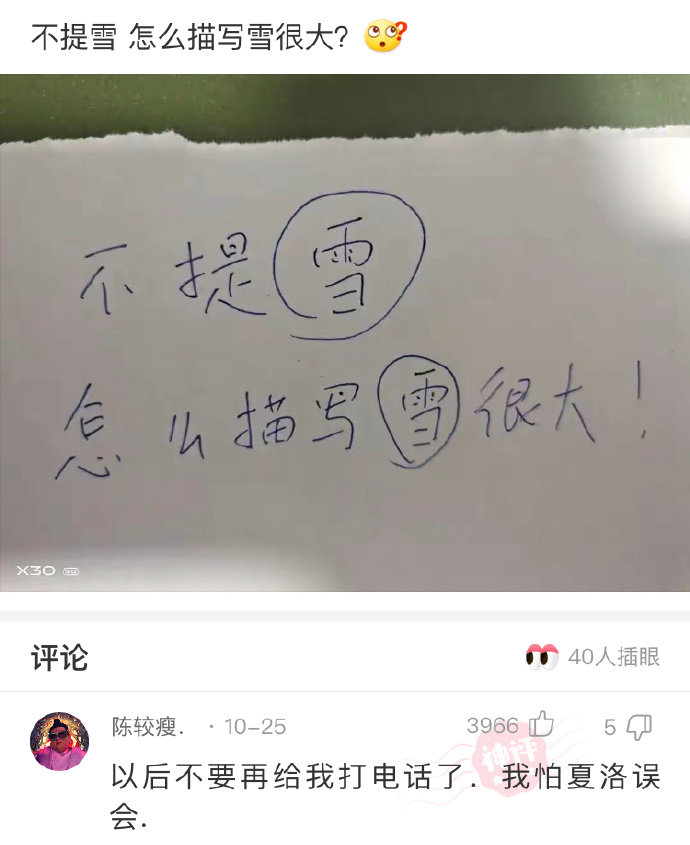 不提雪 怎么描写雪很大?
不提雪
怎么描写雪很大!
X30
评论
40人插眼
陈较瘦. · 10-25
3966
5
神评
以后不要再给我打电话了. 我怕夏洛误
会.